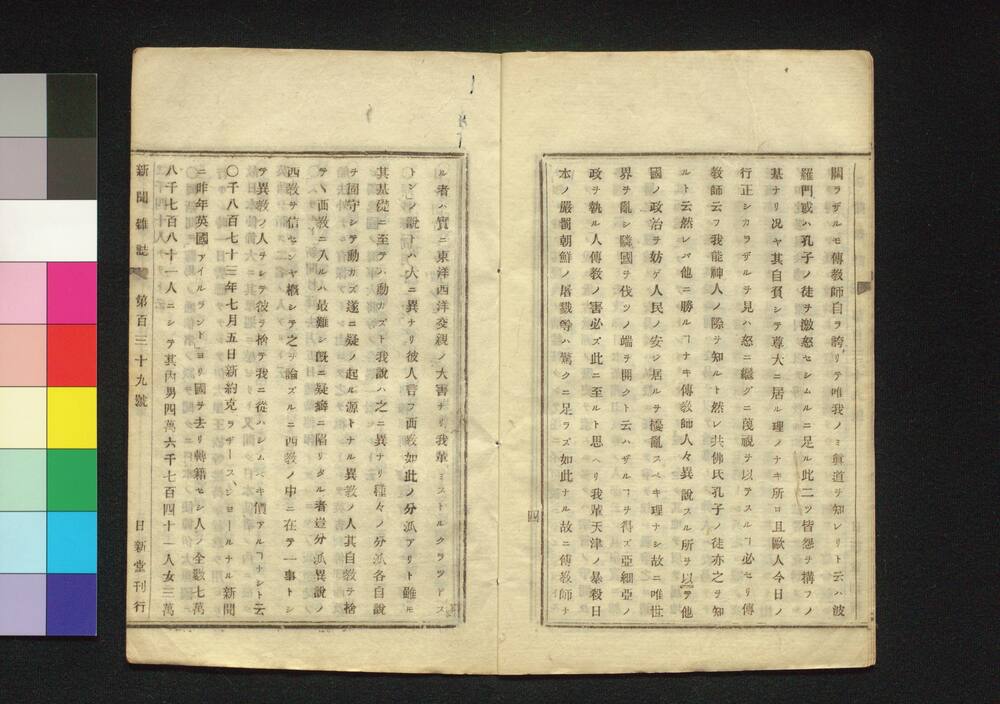 關ラザルモ傳教師自ラ誇リテ唯我ノミ眞道ヲ知レリト云ハ波
羅門或ハ孔子ノ徒ヲ激怒セシムルニ足ル此二ツ皆怨ヲ構フノ
基ナリ况ヤ其自負シテ尊大ニ居ル理ノナキ所ロ且歐人今日ノ
行正シカラザルヲ見ハ怒ニ繼グニ蔑視ヲ以テスルヿ必セリ傳
教師云フ我能神人ノ際ヲ知ルト然レ共佛氏孔子ノ徒亦之ヲ知
ルト云然レバ他ニ勝ルヿナキ傳教師人々異說スル所ヲ以テ他
國ノ政治ヲ妨ゲ人民ノ安ジ居ルヲ擾亂スベキ理ナシ故ニ唯世
界ヲ亂シ隣國ヲ伐ツノ端ヲ開クト云ハザルヿヲ得ズ亞細亞ノ
政ヲ執ル人傳教ノ害必ズ此ニ至ルト思ヘリ我輩天津ノ暴殺日
本ノ嚴罰朝鮮ノ屠戮等ハ驚クニ足ラズ如此ナル故ニ傳教師ヲ
四
ル者ハ實ニ東洋西洋交親ノ大害ナリ我輩ミストルクラツドス
トンノ說トハ大ニ異ナリ彼人言フ西教如此ノ分派アリト雖モ
其基從ニ至テハ動カズト我說ハ之ニ異ナリ種々ノ分派各自說
ヲ固守シテ動カズ遂ニ疑ノ起ル源トナル異教ノ人其自教ヲ捨
テヽ西教ニ入ルハ最難シ旣ニ疑癖ニ陷リタル者豈分派異說ノ
西教ヲ信センヤ概シテ之ヲ論ズルニ西教ノ中ニ在テ一事トシ
テ異教ノ人ヲシテ彼ヲ捨テ我ニ從ハシムベキ價アルヿナシト云
〇千八百七十三年七月五日新約克ラザース、ジョールナル新聞
ニ昨年英國アイルラントヨリ國ヲ去リ轉籍セシ人ノ全數七萬
八千七百八十一人ニシテ其內男四萬六千七百四十一人女三萬
新聞雜誌 第百三十九號 日新堂刊行